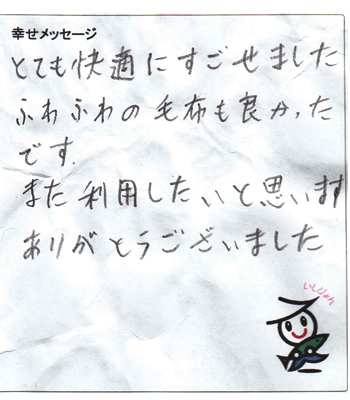 幸せメッセージ
とても快適にすごせました
ふわふわの毛布も良かった
です.
また利用したいと思います
ありがとうございました